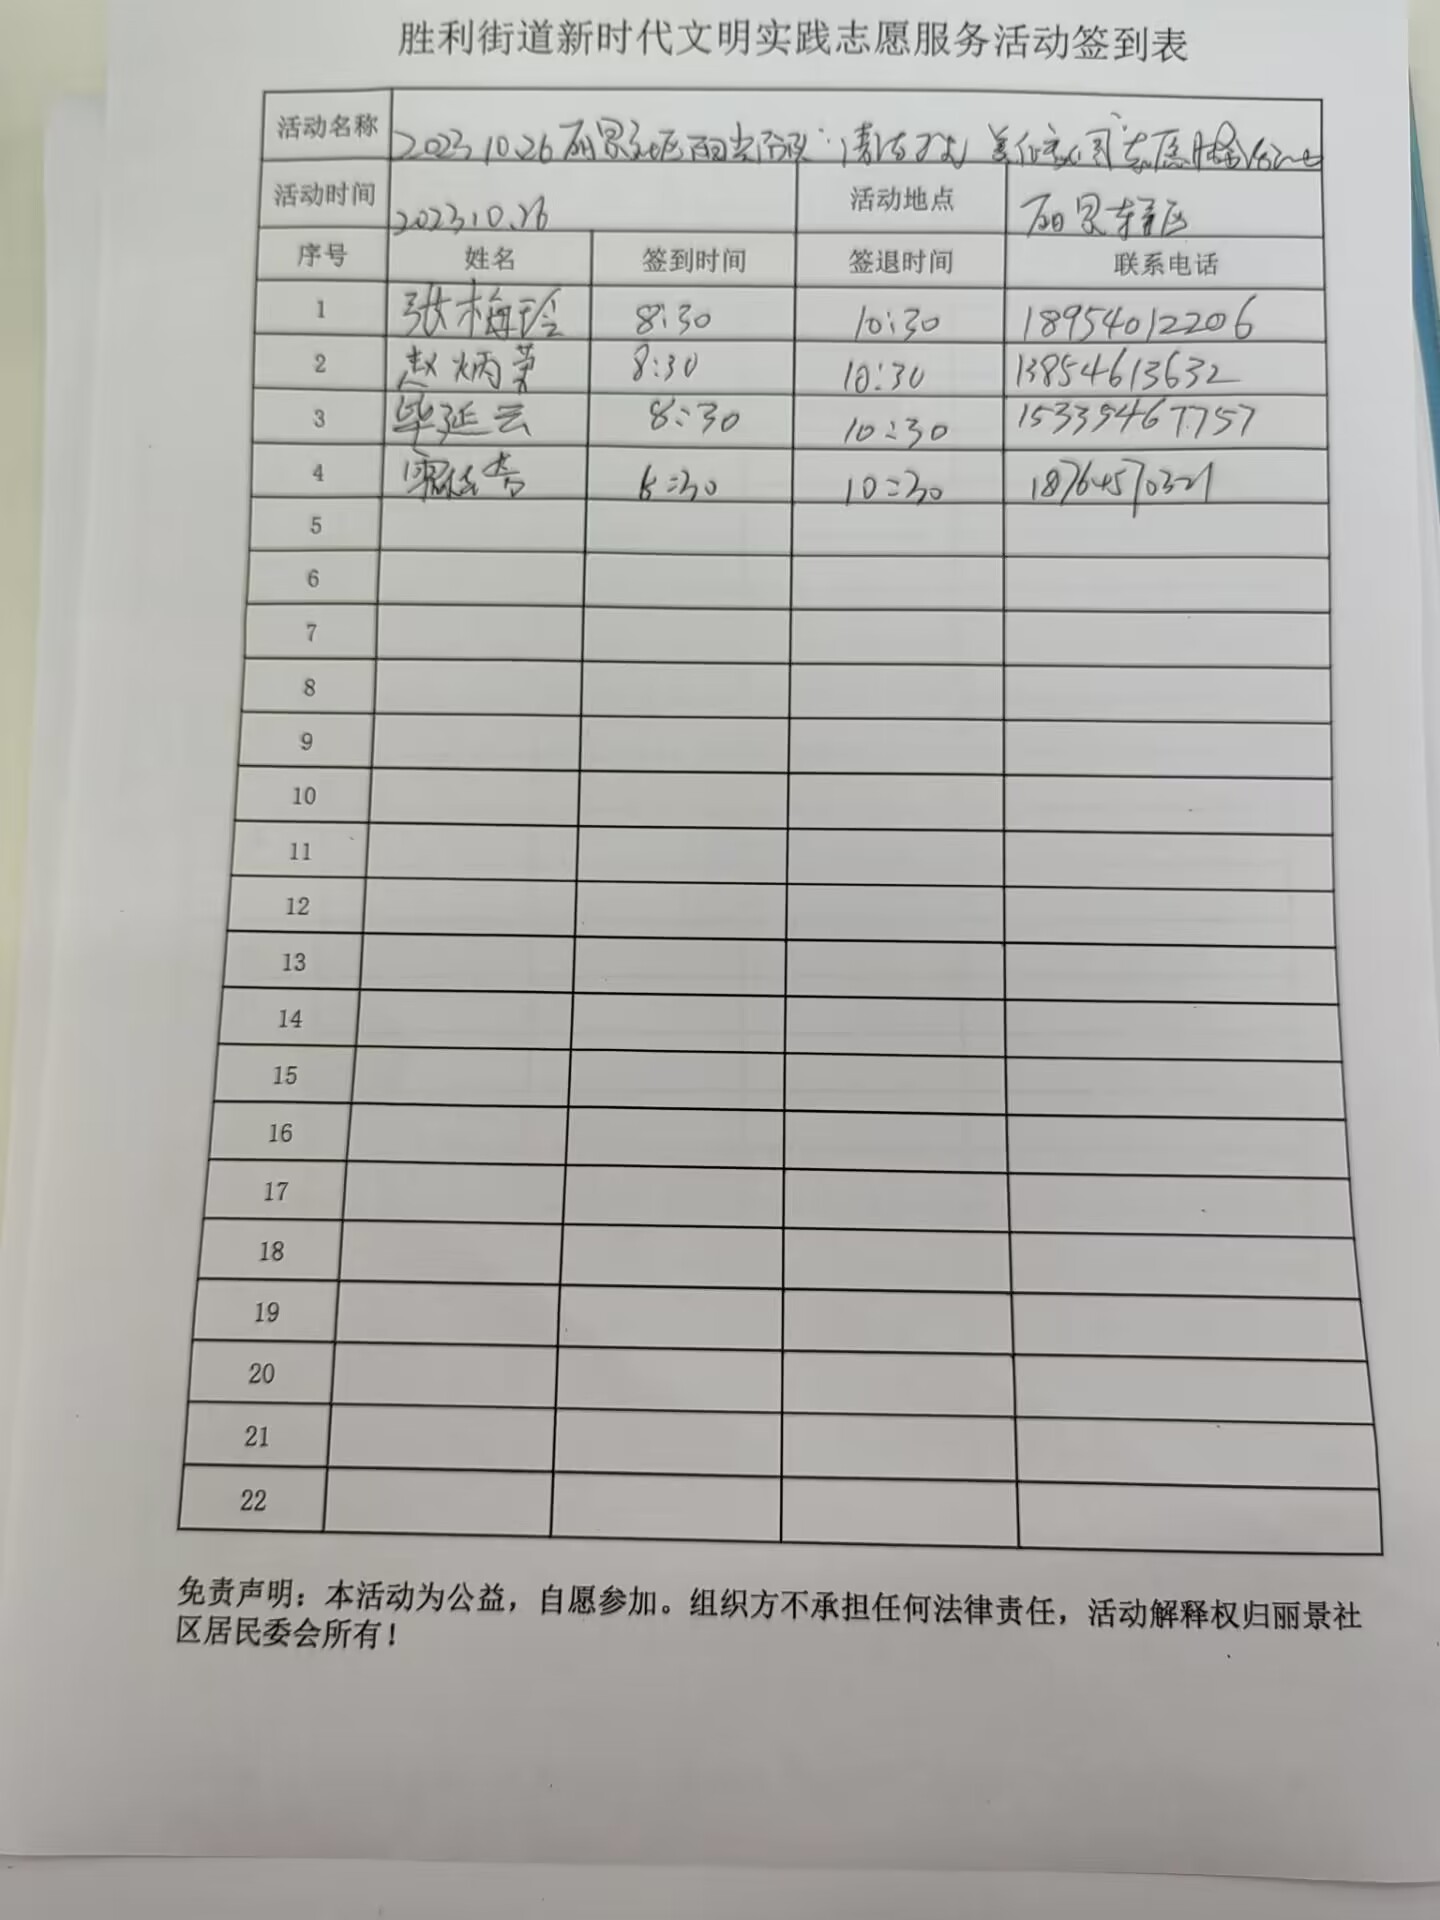 胜利街道新时代文明实践志愿服务活动签到表
活动名称 2023.10.26丽景社区 志愿服务活动
活动时间 2023.10.26 活动地点 丽景辖区
序号 姓名 签到时间 签退时间 联系电话
1 张梅玲 8:30 10:30 18954012206
2 赵炳荣 8:30 10:30 13854613632
3 毕延云 8:30 10:30 15335467757
4 8:30 10:30 18764570321
5
6
7
8
9
10
11
12
13
14
15
16
17
18
19
20
21
22
免责声明：本活动为公益，自愿参加。组织方不承担任何法律责任，活动解释权归丽景社
区居民委会所有！